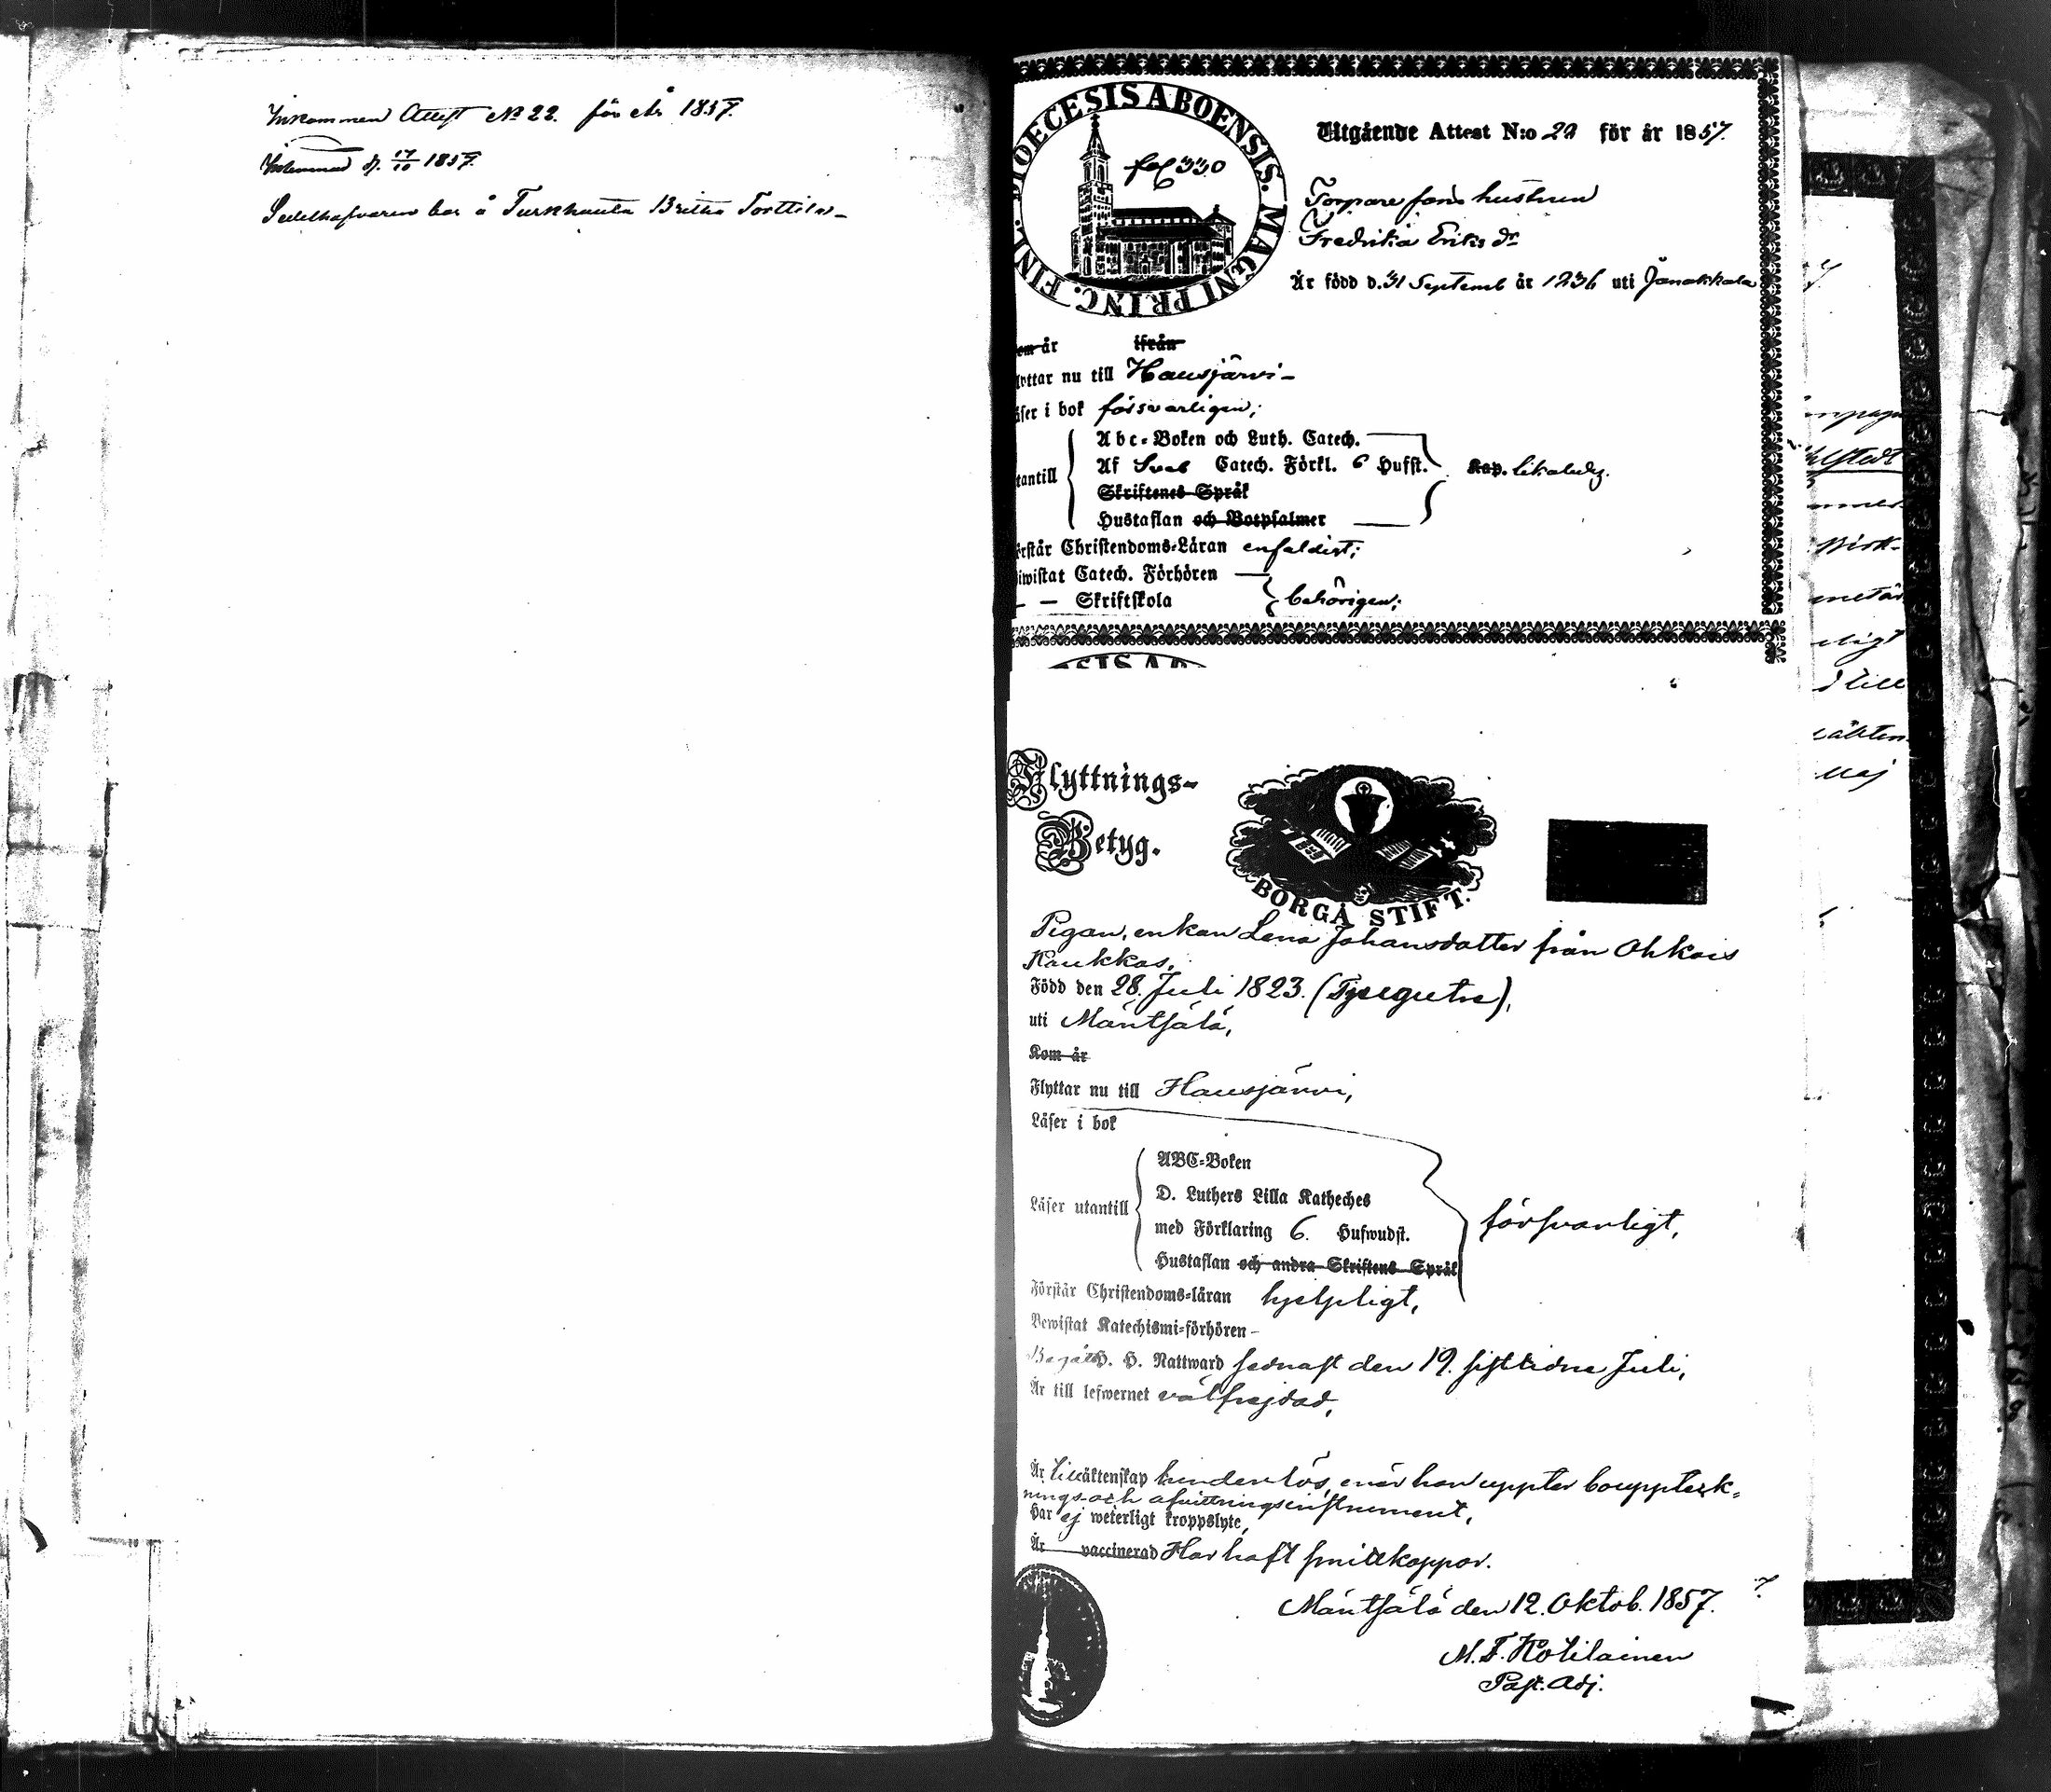 Inkommen Attest No 22. för år 1857.
Inlemnad d. 17/10 1857.
Sedelhafvaren bor å Turkhauta Britha Torttila
DIOECESIS ABOENSIS. MAGNI PRINC. FINL.
fol 330
Utgående Attest N:o 22 för år 1857.
Torpare sons hustrun
Fredrika Eriks dr
Är född d. 31 Septemb år 1836 uti Janakkala
om år ifrån
lyttar nu till Hausjärvi
äser i bok försvarligen;
Abc-Boken och Luth. Catech.
Af Sveb Catech. Förkl. 6 Hufst. Kap. likaledes.
tantill
Skriftenes Språk
Hustaflan och Botpsalmer
örstår Christendoms-Läran enfaldist;
iwistat Catech. Förhören
— — Skriftskola behörigen;
Flyttnings-
Betyg.
BORGÅ STIFT.
Pigan, enkan Lena Johansdotter från Ohkois
Kaukkas,
Född den 28. Juli 1823. (Tjugutre),
uti Mäntsälä,
Kom år
Flyttar nu till Hausjärvi,
Läser i bok
ABC-Boken
D. Luthers Lilla Katheches
Läser utantill
med Förklaring 6. Hufwudst. försvarligt,
Hustaflan och andra Skriftens Språk
Förstår Christendoms-läran hjelpligt,
Bewistat Katechismi-förhören
Begått H. H. Nattward sednast den 19. sistlidne Juli,
Är till lefwernet välfrejdad,
Är till äktenskap hinderlös, enär hon uppter bouppteck-
nings- och afvittringsinstrument,
Har ej weterligt kroppslyte,
Är vaccinerad Har haft smittkoppor.
Mäntsälä den 12. Oktob. 1857.
M. F. Kotilainen
Past. Adj.